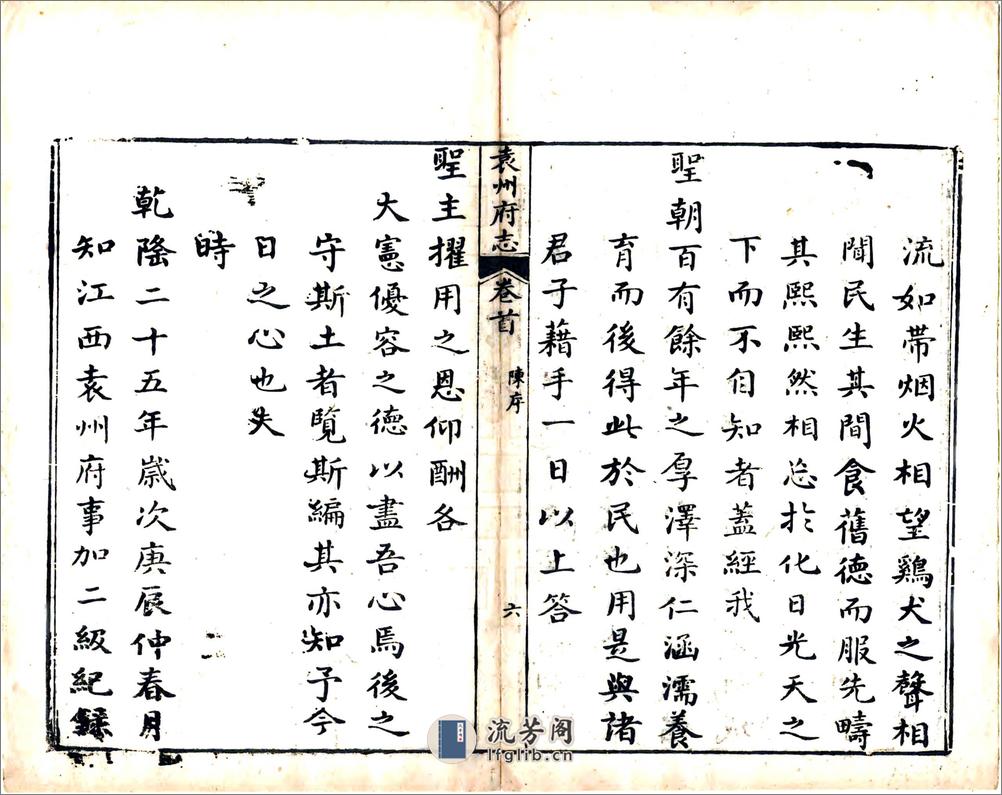 流如帶烟火相望鷄犬之聲相
聞民生其間食舊德而服先疇
其熙熙然相忘於化日光天之
下而不自知者蓋經我
聖朝百有餘年之厚澤深仁涵濡養
育而後得此於民也用是與諸
君子藉手一日以上答
袁州府志 卷首 陳序 六
聖主擢用之恩仰酬各
大憲優容之德以盡吾心焉後之
守斯土者覽斯編其亦知予今
日之心也夫
時
乾隆二十五年嵗次庚辰仲春月
知江西袁州府事加二級紀録
流芳阁
lfglib.cn